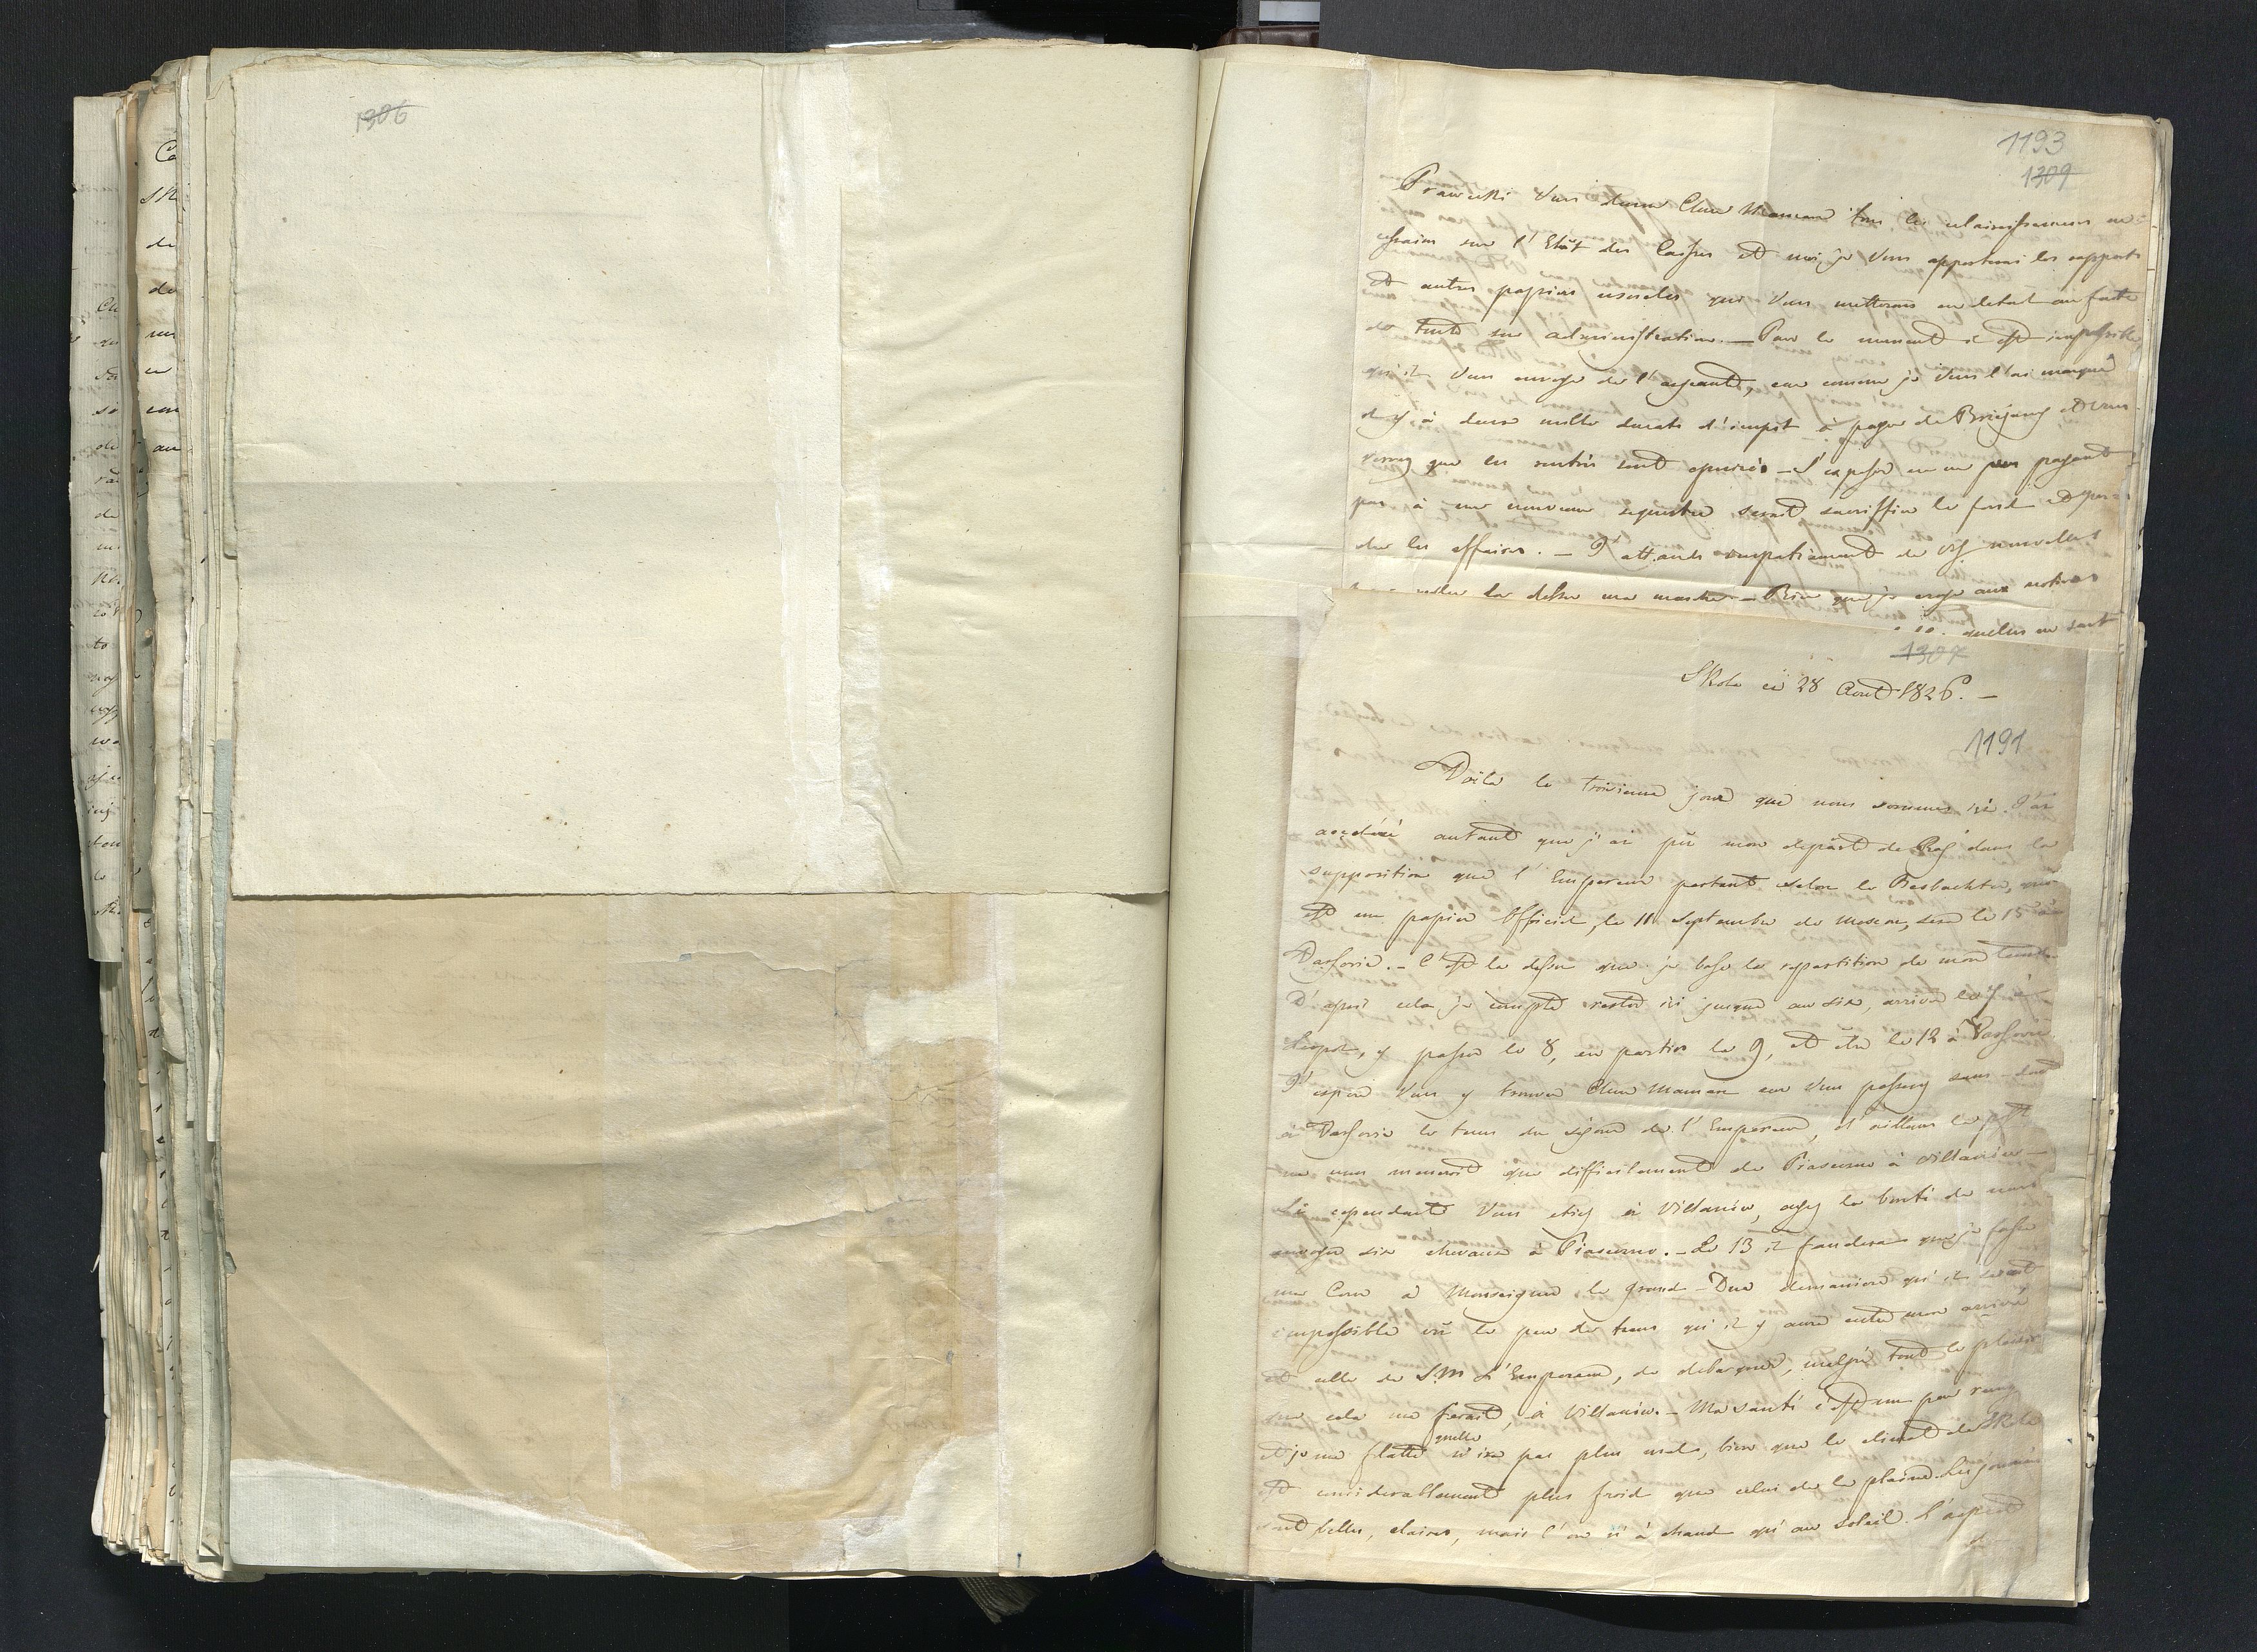 1306
1193
1309
Vous donnera Chere Maman tous les eclaircissemens ne-
cessaires sur l'Etat des Caisses et moi je Vous apporterai les rapports
et autres papiers usuels qui Vous mettrons en detail au faite
de toute son administration. — Pour le moment il est impossible
qu'il Vous envoye de l'argeant, car comme je Vous l'ai marqué
il y à deux mille ducats d'impot à payer de Brzeżany et Vous
verrez que les rentrés sont epuisés — S'exposer en ne payant
pas à un nouveau sequestre serait sacriffier le fond et per-
dre les affaires. — J'attends impatiament de Vos nouvelles
la dessu ma — Bien que je aux notres
quelles en sont
1307
Skole ce 28 Aout 1826. —
1191
Voila le troisieme jour que nous sommes ici. J'ai
acceleré autant que j'ai pû mon départ de dans la
supposition que l'Empereur partant selon le Beobachter, qui
est un papier Officiel, le 11 Septembre de Moscou, sera le 15 à
Varsovie. — C'est la dessu que je base la repartition de mon tems
D'apres cela je compte rester ici jusque au six, arriver le 7 à
Leopol, y passer le 8, en partir le 9, et etre le 12 à Varsovie.
J'espere Vous y trouver Chere Maman car Vous passerez sans-dout
à Varsovie le tems du sejour de l'Empereur, d'ailleurs la poste
ne nous menerait que difficilement de Piaseczno à Villanów —
Si cependant Vous etiez à Villanów, ayez la bonté de nous
envoyer six chevaux à Piaseczno. — Le 13 il faudera que je fasse
ma Cour a Monseigneur le Grand-Duc demaniere qu'il serait
impossible vû le peu de tems qu'il y aura entre mon arrivé
et celle de S.M. l'Empereur, de debarquer, malgré tout le plaisir
que cela me ferait, à Villanów. — Ma santé est un peu
et je me flatte quelle n'ira pas plus mal, bien que le climat de Skole
est considerablement plus froid que celui de la plaine. Les journés
sont belles, claires, mais l'on n'à chaud qu'au soleil. L'aspect